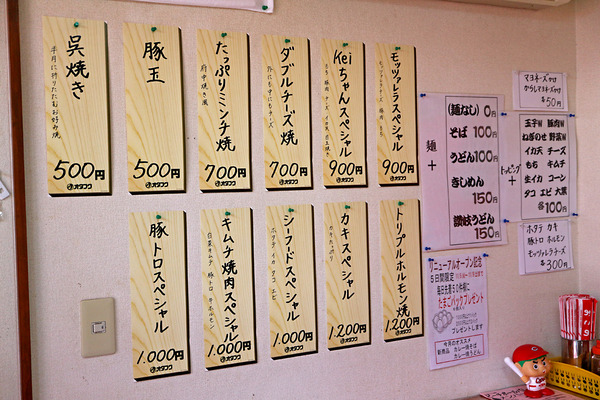 呉焼き
半月に折りたたむお好み焼
500円
オタフク
豚玉
500円
オタフク
たっぷりミンチ焼
府中焼き風
700円
オタフク
ダブルチーズ焼
外にも中にもチーズ
700円
オタフク
Keiちゃんスペシャル
900円
オタフク
モッツァレラスペシャル
900円
オタフク
豚トロスペシャル
1.000円
オタフク
キムチ焼肉スペシャル
1.000円
オタフク
シーフードスペシャル
ホタテ イカ タコ エビ
1.000円
オタフク
カキスペシャル
1.200円
オタフク
トリプルホルモン焼
1.200円
オタフク
麺+
(麺なし) 0円
そば 100円
うどん100円
きしめん
150円
讃岐うどん
150円
マヨネーズ
からしマヨネーズ
各50円
トッピング+
玉子W 豚肉W
ねぎのせ 野菜W
イカ天 チーズ
もち キムチ
生イカ コーン
タコ エビ 大葉
各100円
ホタテ カキ
豚トロ ホルモン
モッツァレラチーズ
各300円
リニューアルオープン記念
5日間限定
毎日先着50件様に
たまごパックプレゼント
プレゼントします
今月のオススメ
新商品 カレー焼そば
カレー焼うどん